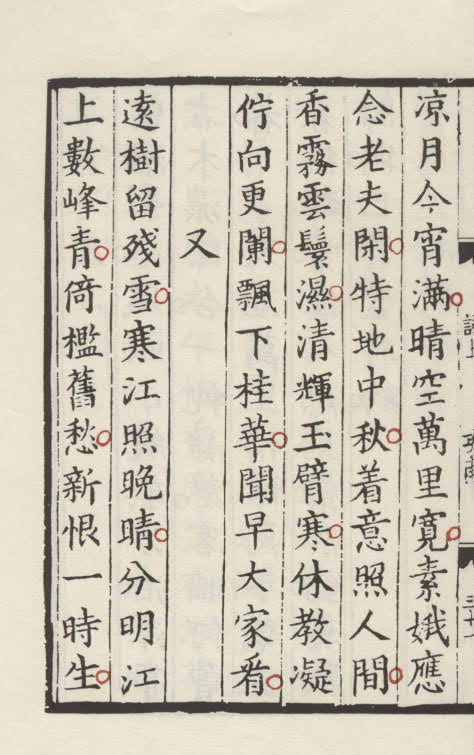 凉月今宵滿晴空萬里寬素娥應
念老夫閑特地中秋着意照人間
香霧雲鬟濕清輝玉臂寒休教凝
佇向更闌飄下桂華聞早大家看
又
遠樹留殘雪寒江照晚晴分明江
上數峰青倚檻舊愁新恨一時生